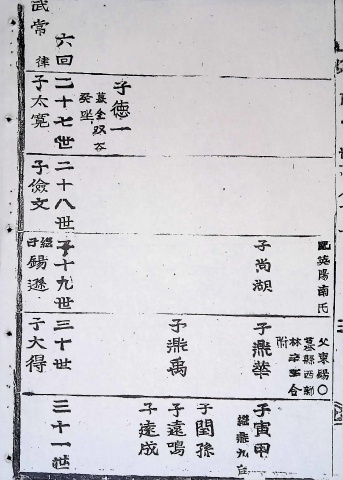 六回
武常
律
二十七世
子太寬
子德一
墓金双谷
癸坐
二十八世
子儉文
二十九世
子錫遜
子尚湖
配英陽南氏
三十世
子大得
子鼎禹
子鼎華
父東錫〇
墓縣西部
合
附
三十一世
子閏孫
子遠鳴
子遠成
子寅甲